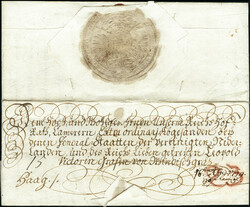 Dem Hoch und Wohlgebohrnen Unserm Reichs Hof
Rath, Cammerern Extraordinari Abgesandten bey
denen General Staatten der Vereinigten Nider
Landen, und des Reichs Lieben getreüen Leopold
Victorin Grafen von Windischgraz
Haag